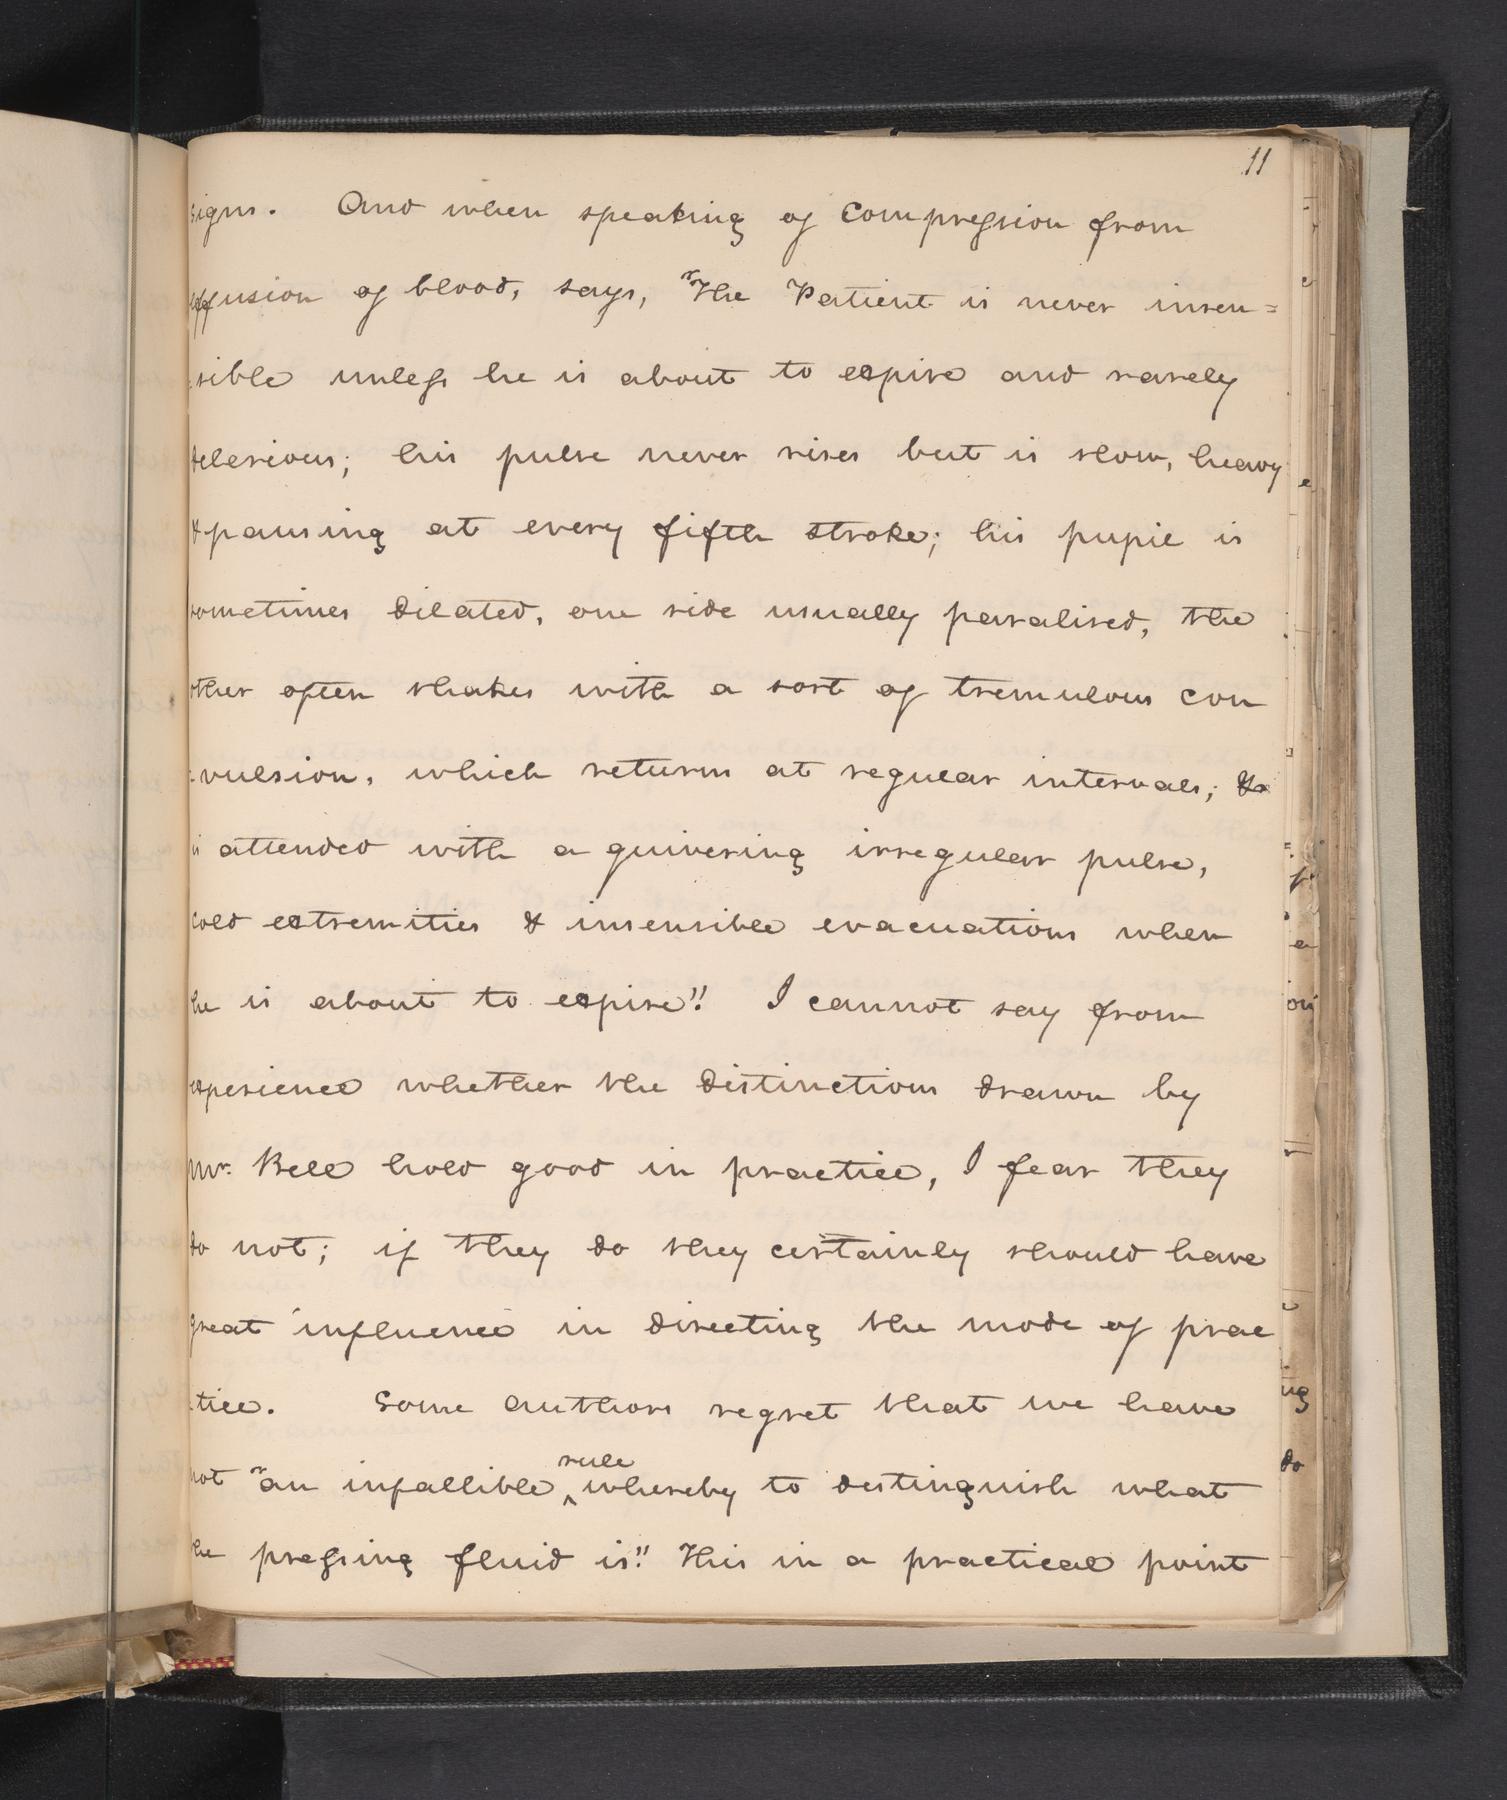 11
signs. And when speaking of Compression from
effusion of blood, says, "The Patient is never insen=
sible unless he is about to expire and rarely
delerious; his pulse never rises but is slow, heavy
& pausing at every fifth stroke; his pupil is
sometimes dilated, one side usually paralised, the
other often shakes with a sort of tremulous con
vulsion, which returns at regular intervals; &
is attended with a quivering irregular pulse,
cold extremities & insensible evacuations when
he is about to expire". I cannot say from
experience whether the distinctions drawn by
Mr. Bell hold good in practice, I fear they
do not; if they do they certainly should have
great influence in directing the mode of prac
tice. Some authors regret that we have
not "an infallible rule whereby to distinguish what
the pressing fluid is". This in a practical point